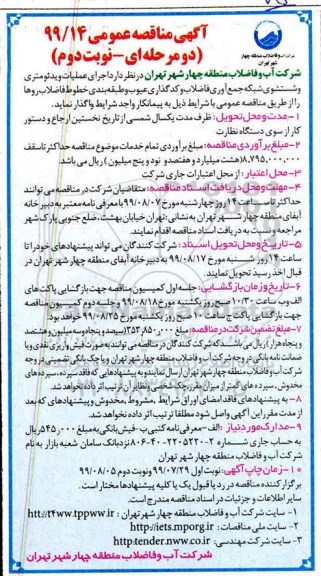 شرکت آب و فاضلاب منطقه چهار
شهر تهران
آگهی مناقصه عمومی ۹۹/۱۴
(دو مرحله‌ای - نوبت دوم)
شرکت آب و فاضلاب منطقه چهار شهر تهران در نظر دارد اجرای عملیات ویدئومتری
و شستشوی شبکه جمع آوری فاضلاب و کدگذاری عیوب و طبقه‌بندی خطوط فاضلاب‌رو ها
را از طریق مناقصه عمومی با شرایط ذیل به پیمانکار واجد شرایط واگذار نماید.
۱- مدت و محل تحویل: ظرف مدت یکسال شمسی از تاریخ نخستین ارجاع و دستور
کار از سوی دستگاه نظارت
۲- مبلغ برآوردی مناقصه: مبلغ برآوردی تمام خدمات موضوع مناقصه حداکثر تا سقف
۸,۷۹۵,۰۰۰,۰۰۰ (هشت میلیارد و هفتصد و نود و پنج میلیون) ریال می باشد.
۳- محل اعتبار: از محل اعتبارات جاری شرکت
۴- مهلت و محل دریافت اسناد مناقصه: متقاضیان شرکت در مناقصه می توانند
حداکثر تا ساعت ۱۴ روز چهارشنبه مورخ ۹۹/۰۸/۰۷ با معرفی نامه معتبر به دبیرخانه
آبفای منطقه چهار شهر تهران به نشانی: تهران خیابان بهشت، ضلع جنوبی پارک شهر
مراجعه و نسبت به دریافت اسناد مناقصه اقدام نمایند.
۵- تاریخ و محل تحویل اسناد: شرکت کنندگان می تواند پیشنهادهای خود را تا
ساعت ۱۴ روز شنبه مورخ ۹۹/۰۸/۱۷ به دبیرخانه آبفای منطقه چهار شهر تهران در
قبال اخذ رسید تحویل نمایند.
۶- تاریخ و زمان بازگشایی: جلسه اول کمیسیون مناقصه جهت بازگشایی پاکت های
الف و ب ساعت ۱۰/۳۰ صبح روز یکشنبه مورخ ۹۹/۰۸/۱۸ و جلسه دوم کمیسیون مناقصه
جهت بازگشایی پاکت ج ساعت ۱۰ صبح روز یکشنبه مورخ ۹۹/۰۸/۲۵ خواهد بود.
۷- مبلغ تضمین شرکت در مناقصه: مبلغ ۳۵۳,۸۵۰,۰۰۰ (سیصد و پنجاه و سه میلیون و هشتصد
و پنجاه هزار) ریال می باشد که شرکت کنندگان در مناقصه می توانند به صورت فیش واریزی نقدی و یا
ضمانت نامه بانکی در وجه شرکت آب و فاضلاب منطقه چهار شهر تهران و یا چک بانکی تضمینی در وجه
شرکت آب و فاضلاب منطقه چهار شهر تهران ارسال نمایند و به پیشنهادهایی که فاقد سپرده، سپرده های
مخدوش، سپرده های کمتر از میزان مقرر، چک شخصی و نظایر آن ترتیب اثر داده نخواهد شد.
۸- به پیشنهادهای فاقد امضای اوراق شرایط، مشروط، مخدوش و پیشنهادهای که بعد
از مدت مقرر این آگهی واصل شود مطلقا ترتیب اثر داده نخواهد شد.
۹- مدارک مورد نیاز: الف- معرفی نامه کتبی ب- فیش بانکی به مبلغ ۴۵۰,۰۰۰ ریال
به حساب جاری شماره ۲-۲۲۰۵۲۲۰-۴۰-۸۰۶ نزد بانک سامان شعبه بازار به نام
شرکت آب و فاضلاب منطقه چهار شهر تهران
۱۰- زمان چاپ آگهی: نوبت اول ۹۹/۰۷/۲۹ و نوبت دوم ۹۹/۰۸/۰۵
برگزار کننده مناقصه در رد یا قبول یک یا کلیه پیشنهادها مختار است.
سایر اطلاعات و جزئیات در اسناد مناقصه مندرج است.
۱- سایت شرکت آب و فاضلاب منطقه چهار شهر تهران: htt://t4ww.tppww.ir
۲- سایت ملی مناقصات: http://iets.mporg.ir
۳- سایت شرکت مهندسی: http:tender.nww.co.ir
شرکت آب و فاضلاب منطقه چهار شهر تهران